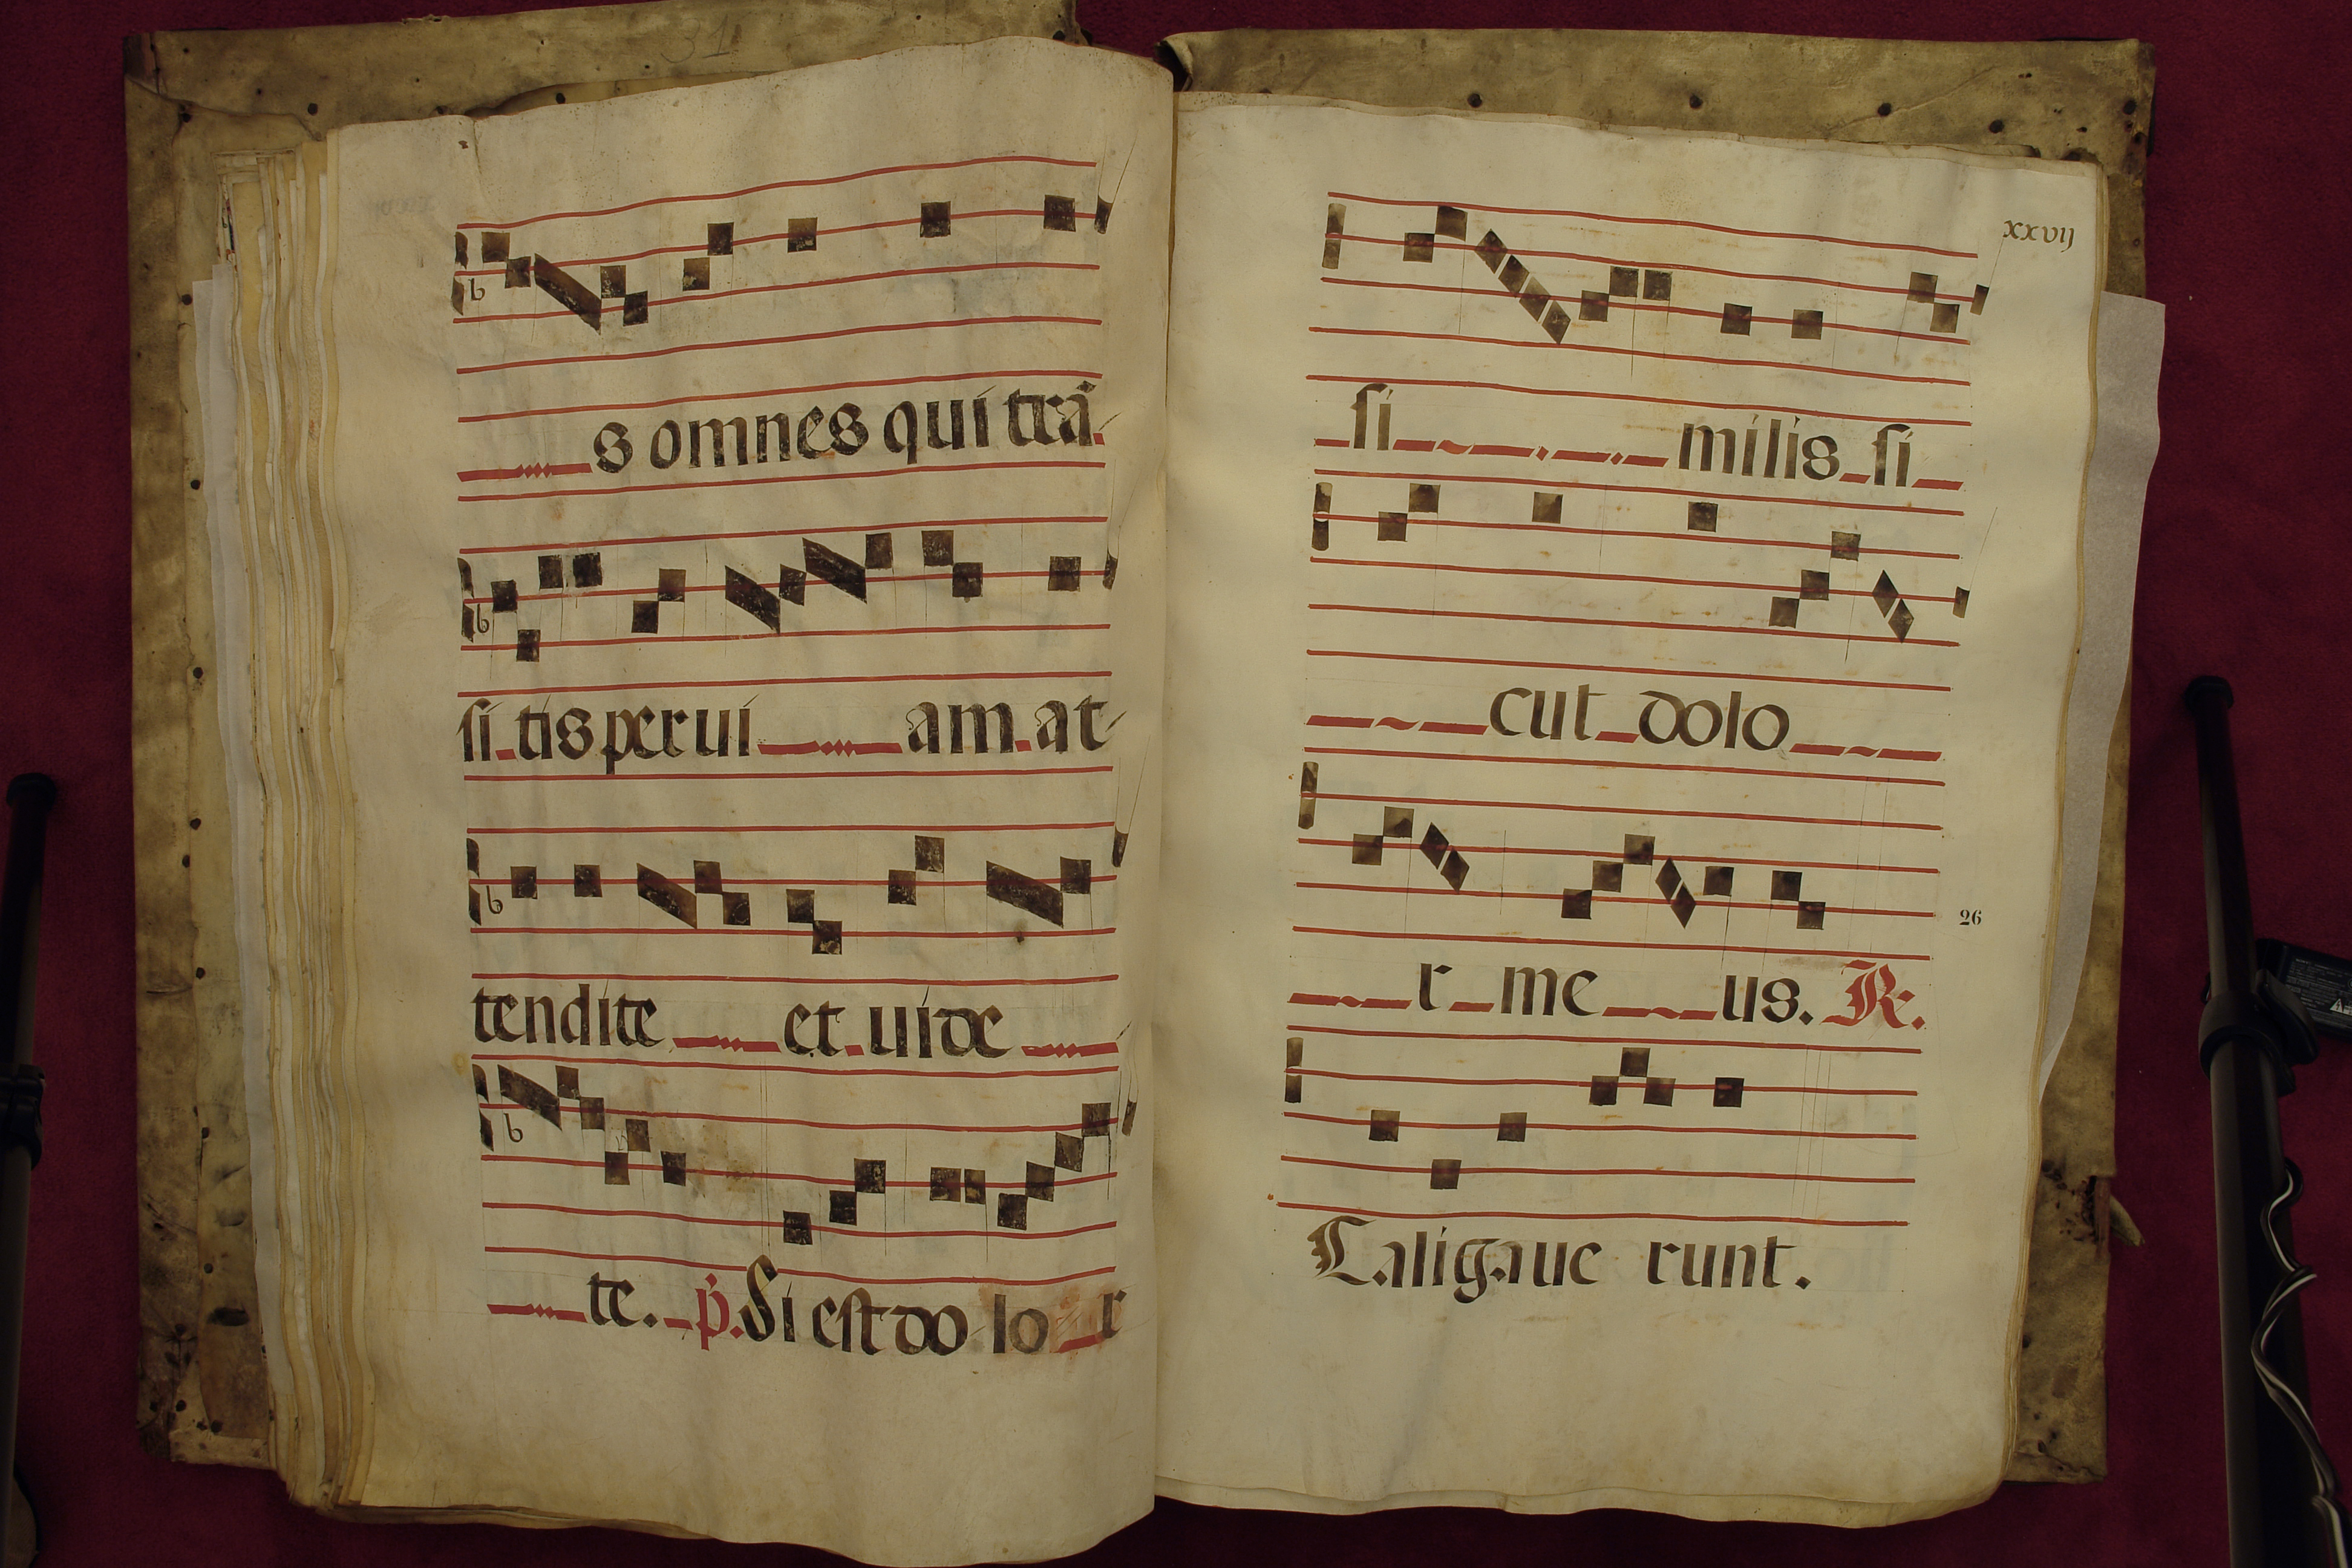 31
s omnes qui trã
si tis per ui am at
tendite et uide
te. p. Si est do lo r
xxvij
si milis si
cut dolo
r me us. R.
26
Caligaue runt.